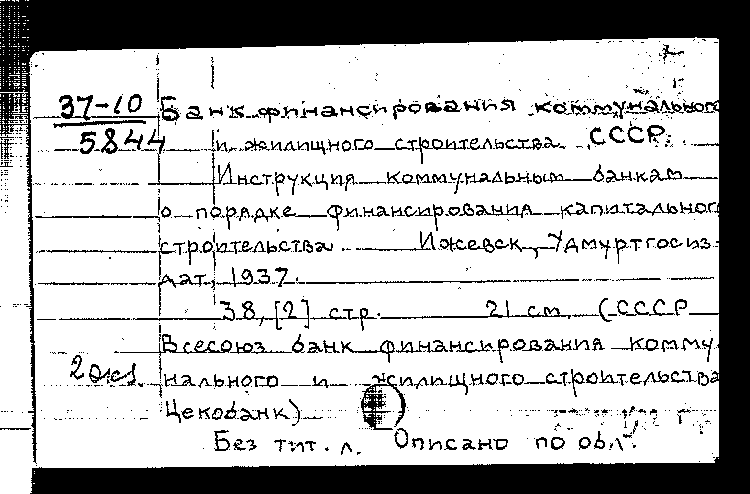 37-10 Банк финансирования коммунального
5844 и жилищного строительства СССР.
Инструкция коммунальным банкам
о порядке финансирования капитального
строительства. Ижевск, Удмуртгосиз-
дат, 1937.
38, [2] стр. 21 см. (СССР
Всесоюз банк финансирования комму-
2 экз. нального и жилищного строительства
Цекобанк)
Без тит. л. Описано по обл.